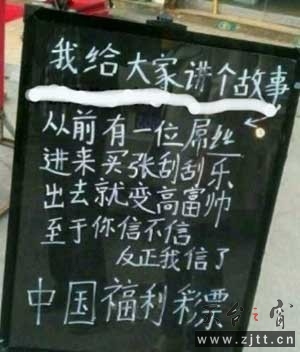 我给大家讲个故事
从前有一位屌丝
进来买张刮刮乐
出去就变高富帅
至于你信不信
反正我信了
中国福利彩票
www.zjtt.cn